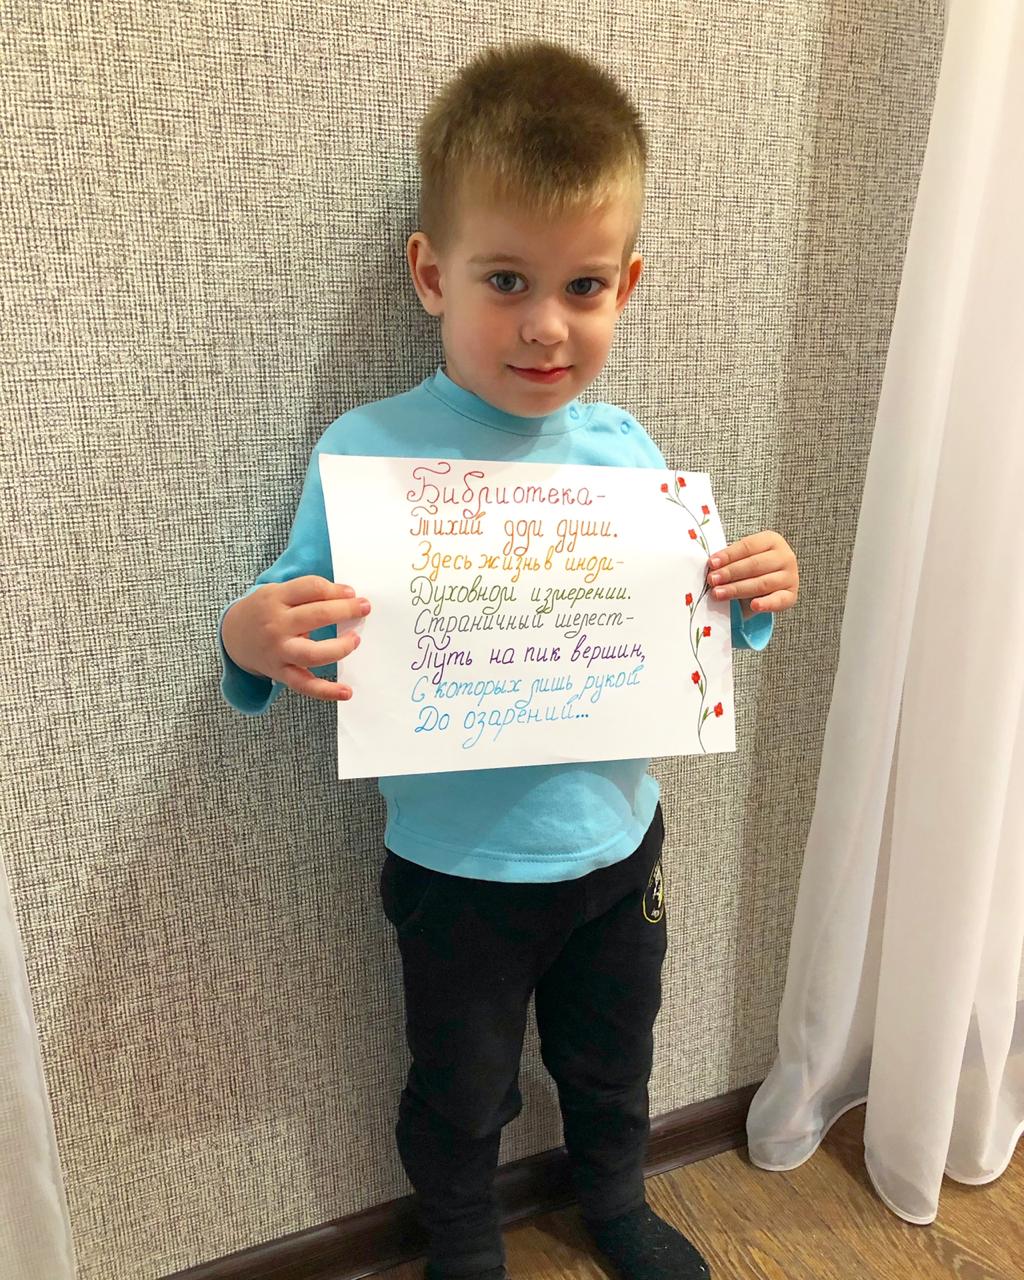 Библиотека-
Тихий дом души.
Здесь жизнь в ином-
Духовном измерении.
Страничный шелест-
Путь на пик вершин,
С которых лишь рукой
До озарений...